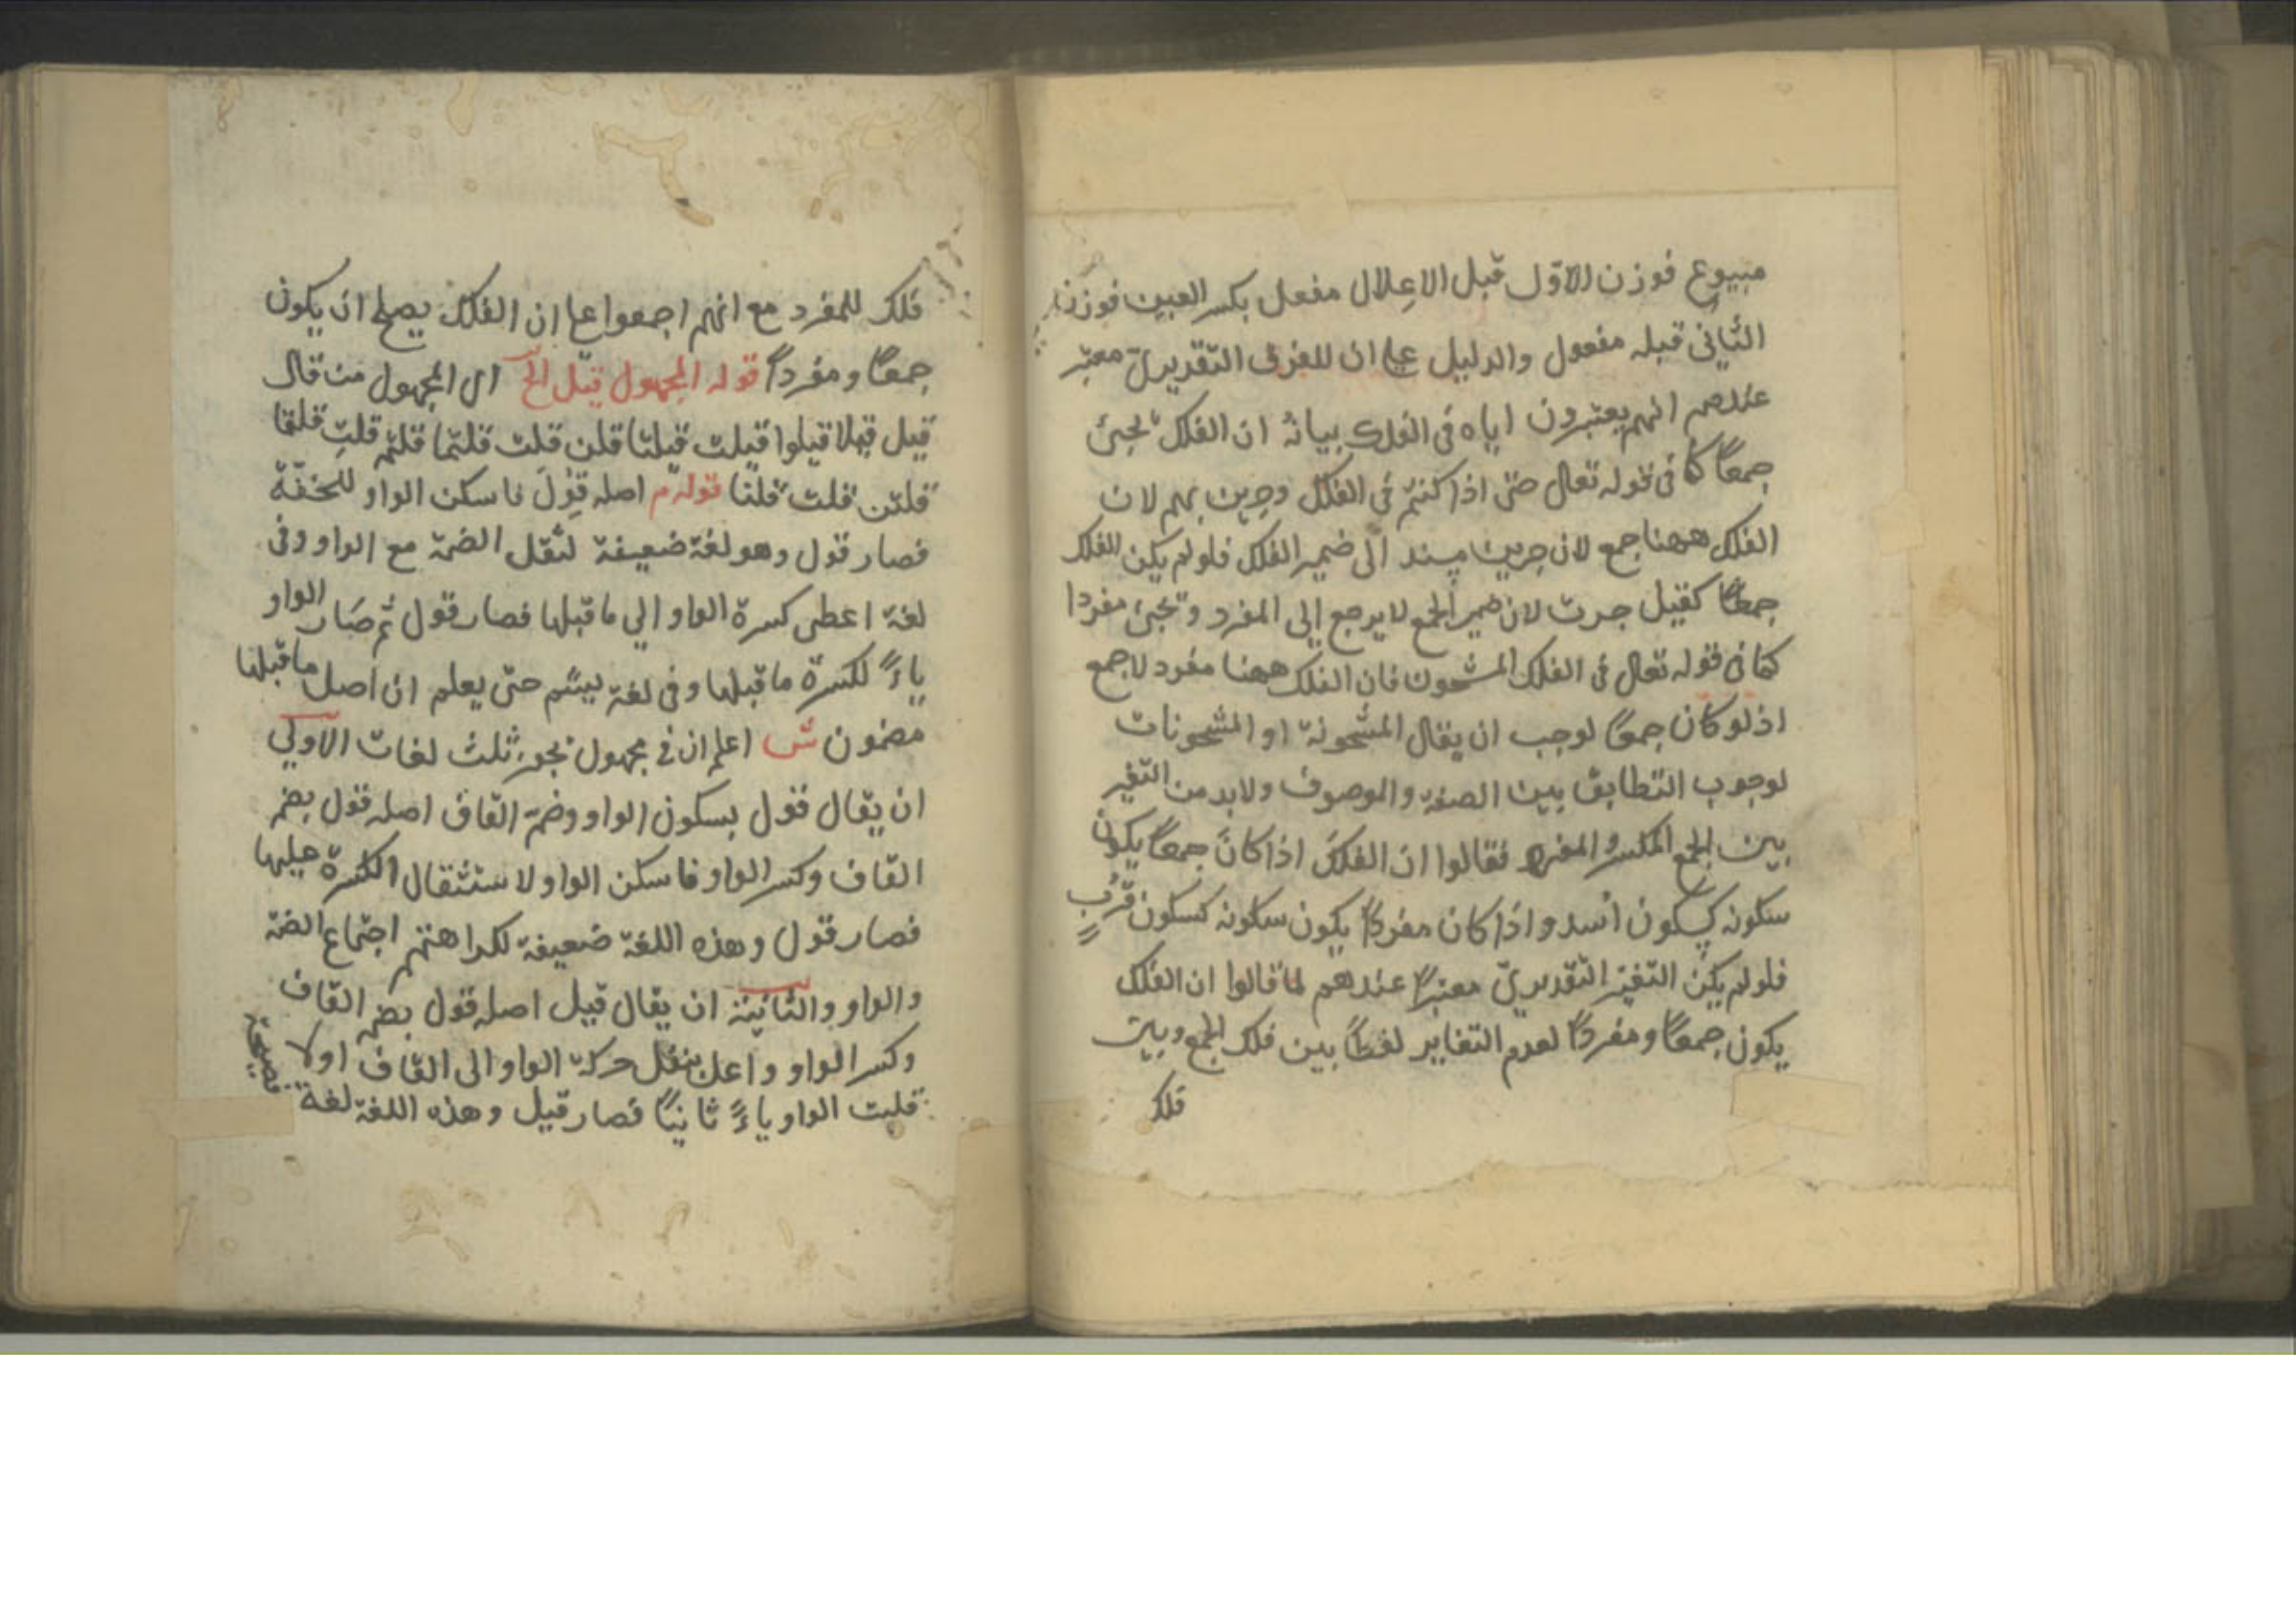 مبيوع فوزن الاوّل قبل الاعِلال مفعل بكسر العين فوزن
الثّانى قبله مفعول والدليل على ان للفرق التّقديرىّ معتبر
عندهم انهم يعتبرون اياه فى الفلك بيانهُ ان الفلك تجئ
جمعًا كما فى قوله تعالى حتّى اذا كنتم فى الفلك وجرين بهم لان
الفلك ههنا جمع لان جرين مسند الى ضمير الفلك فلو لم يكن الفلك
جمعًا كقيل جرت لان ضمير الجمع لا يرجع الى المفرد وتجئ مفردا
كما فى قوله تعالى فى الفلك المشحون فان الفلك ههنا مفرد لا جمع
اذ لو كان جمعًا لوجب ان يقال المشحونة او المشحونات
لوجوب التّطابق بين الصفة والموصوف ولا بد من التّغير
بين الجمع المكسر والمفرد فقالوا ان الفلكَ اذا كانَ جمعًا يكون
سكونه كسكون اُسد واذا كان مفردًا يكون سكونه كسكون قُرْبٍ
فلو لم يكن التّغيّر التّقديرىّ معتبرًا عندهم لما قالوا ان الفلك
يكون جمعًا ومفردًا لعدم التغاير لفظًا بين فلك الجمع وبين
فلك
فلك للمفرد مع انهم اجمعوا على ان الفلك يصلح ان يكون
جمعًا ومفردًا قوله المجهول قيل الخ اى المجهول من قال
قيل قيلا قيلوا قيلت قيلتا قلن قلت قلتما قلتم قلتِ قلتما
قلتن قلت قلنا قوله م اصله قُوِلَ فاسكن الواو للخفّة
فصار قول وهو لغة ضعيفة لثقل الضمّة مع الواو وفى
لغة اعطى كسرة الواو الى ما قبلها فصار قول ثم صَار الواو
ياءً لكسرة ما قبلها وفى لغة يشم حتى يعلم ان اصل ما قبلها
مضمون ش اعلم ان فى مجهول يجوز ثلث لغات الاولى
ان يقال قول بسكون الواو وضمّ القاف اصله قول بضم
القاف وكسر الواو فاسكن الواو لاستثقال الكسرة عليها
فصار قول وهذه اللغة ضعيفة لكراهتهم اجتماع الضمّة
والواو والثانيَة ان يقال قيل اصله قول بضم القاف
وكسر الواو واعل بنقل حركة الواو الى القاف اولا
قلبت الواو ياءً ثانيًا فصار قيل وهذه اللغة لغة
فصيحة